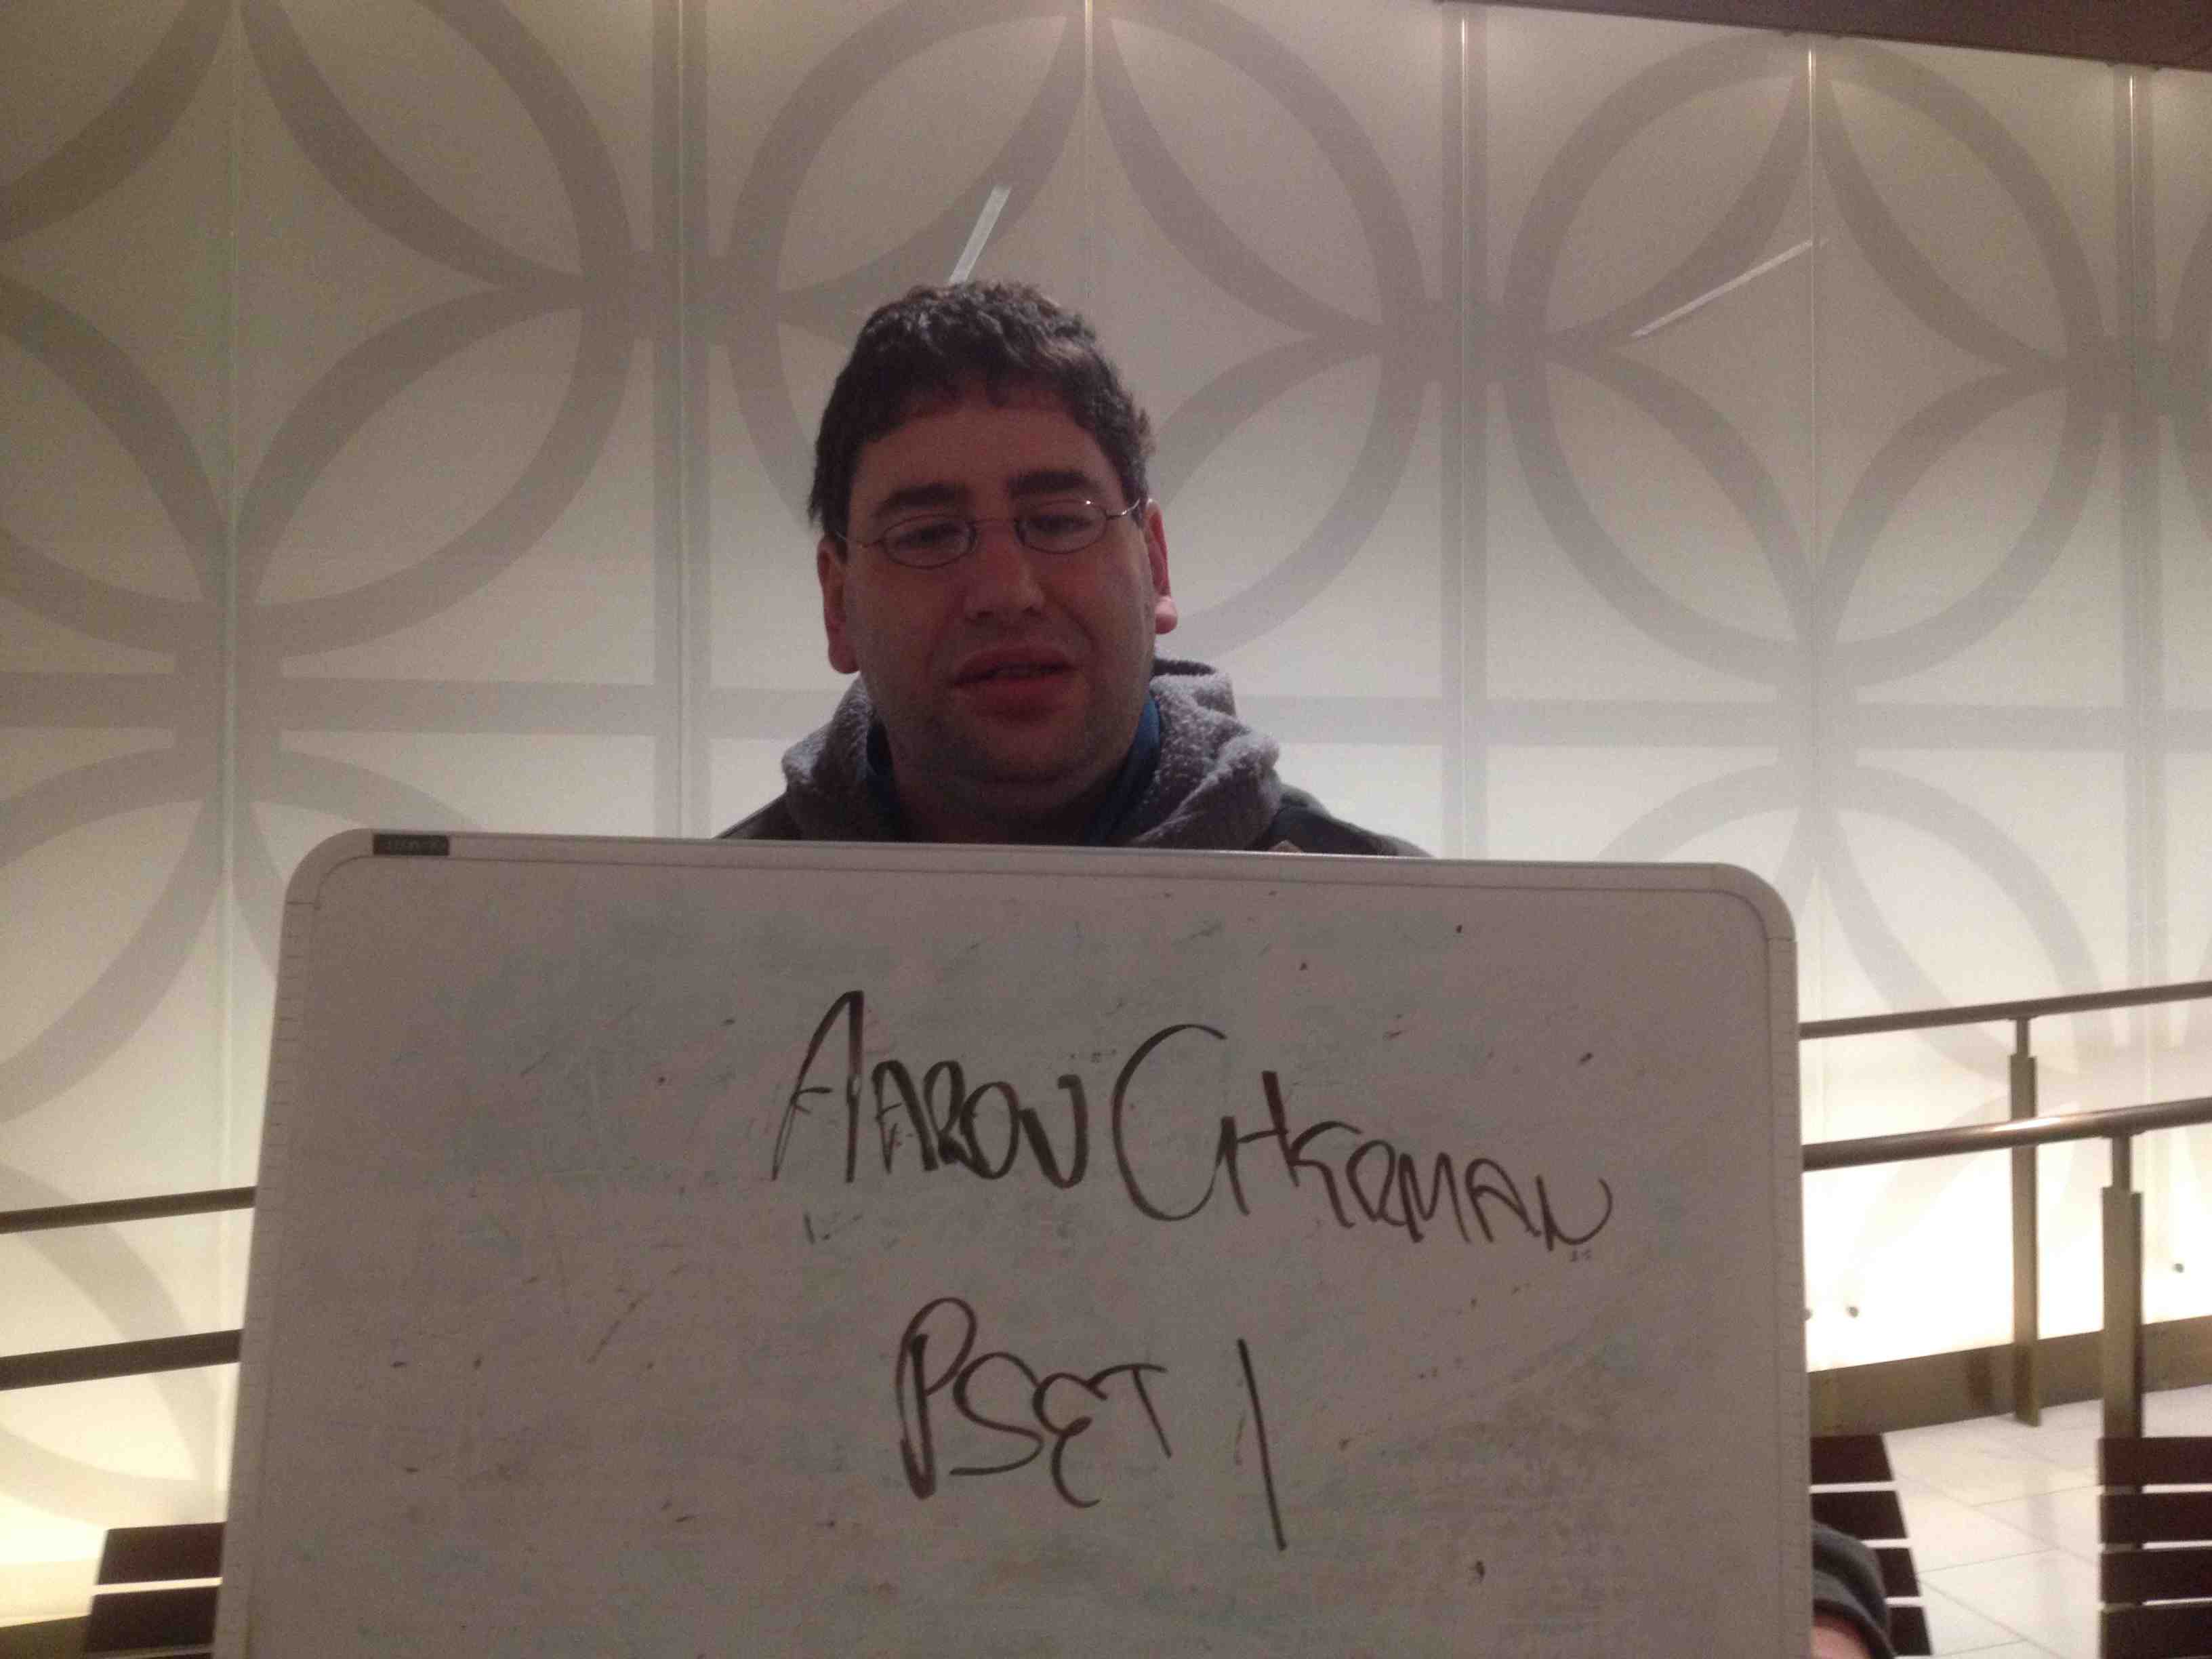 AARON GHKRMAN
PSET 1